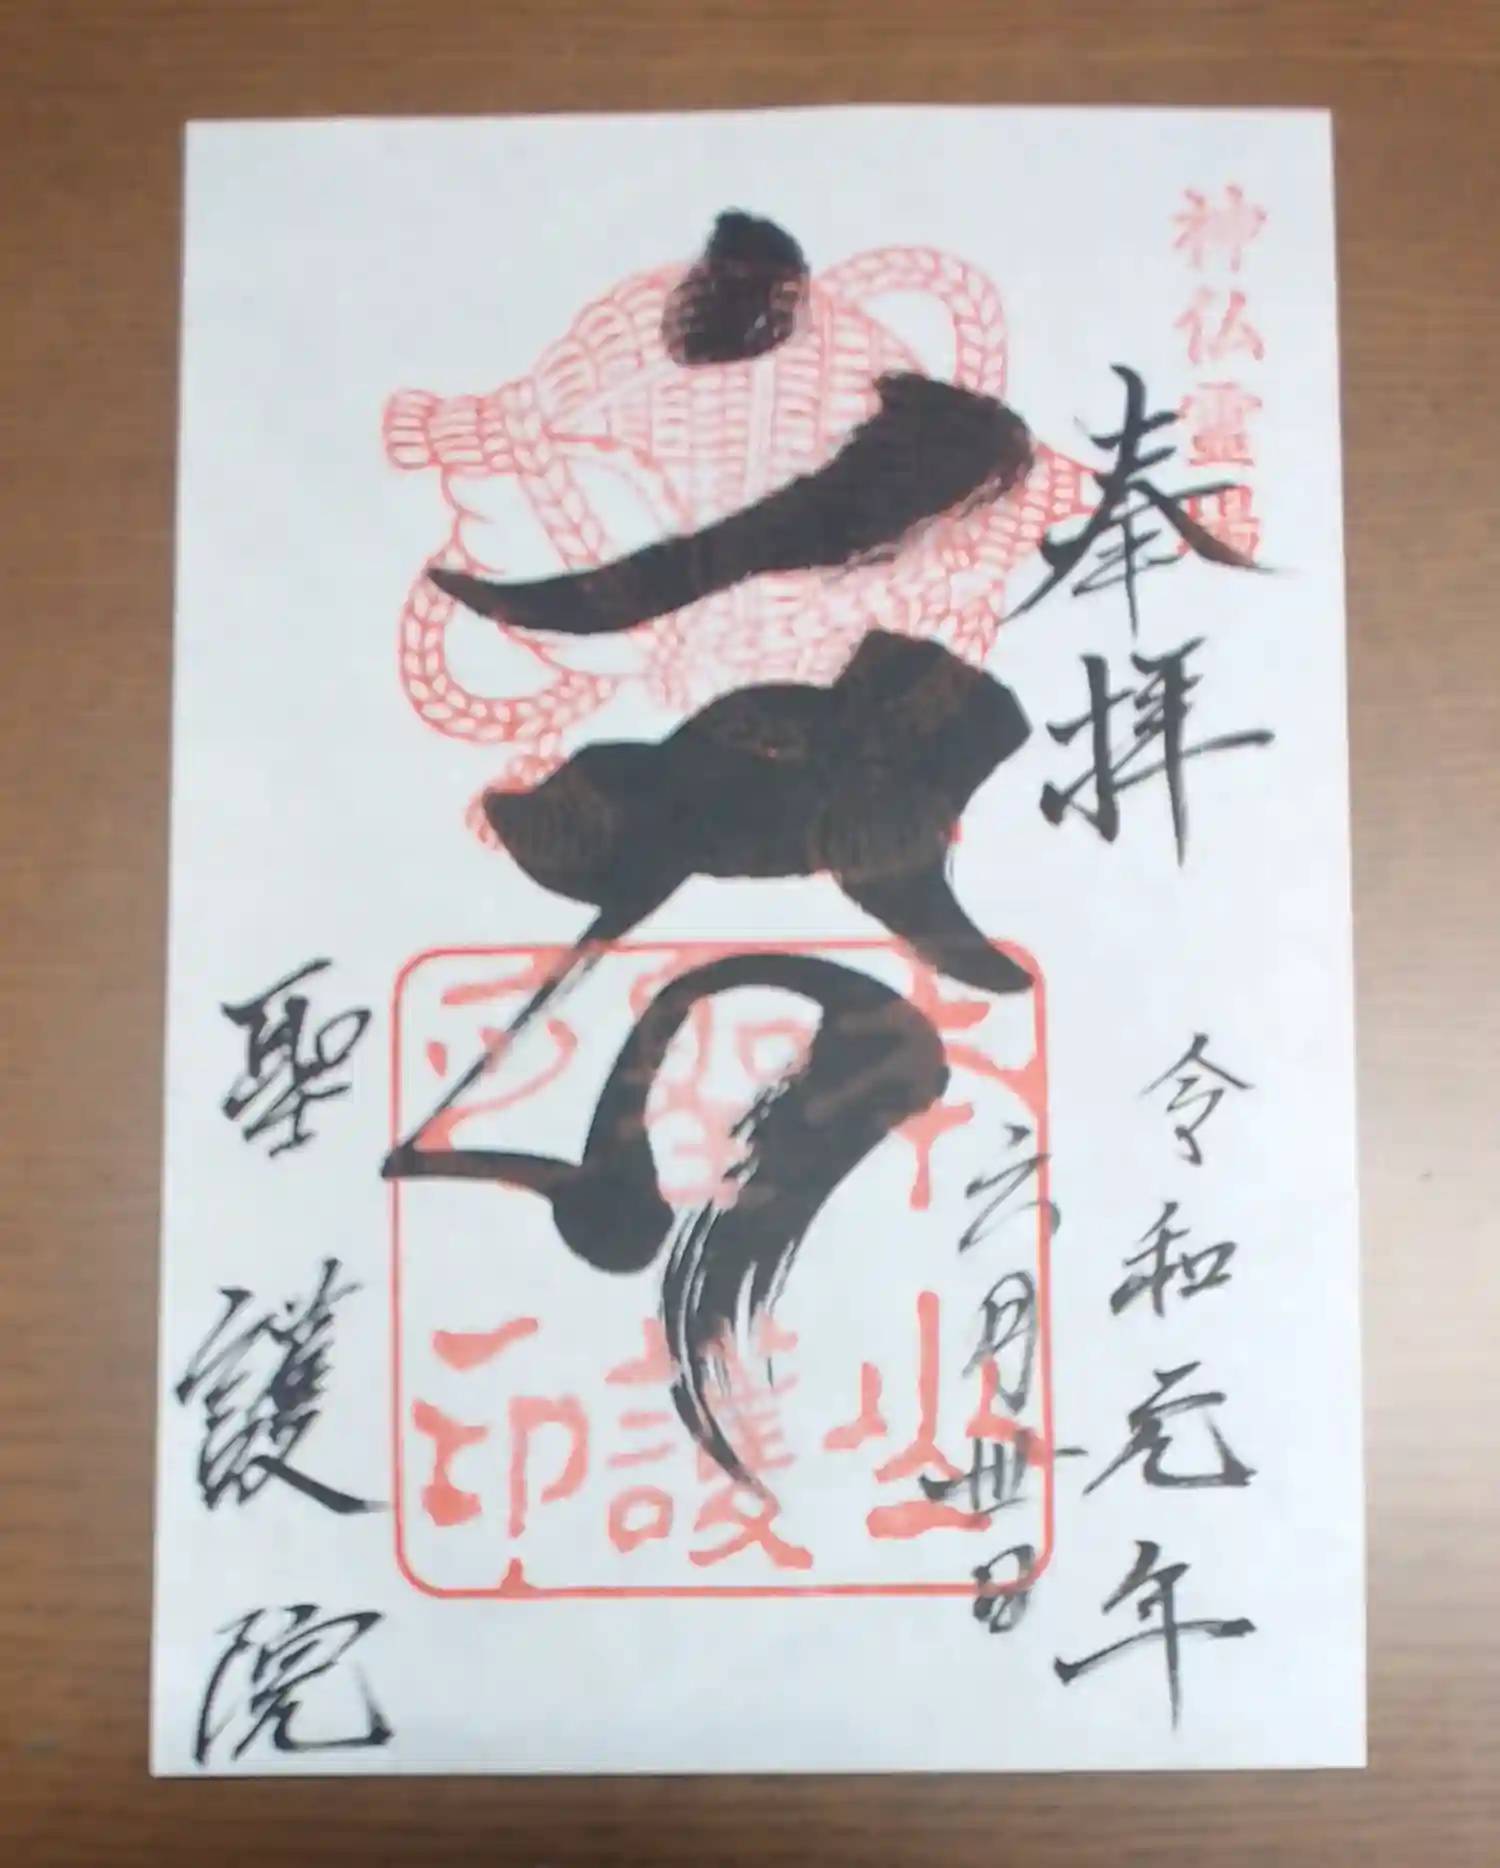 神仏霊場
奉拝
令和元年
六月卅日
聖護
印
聖護院